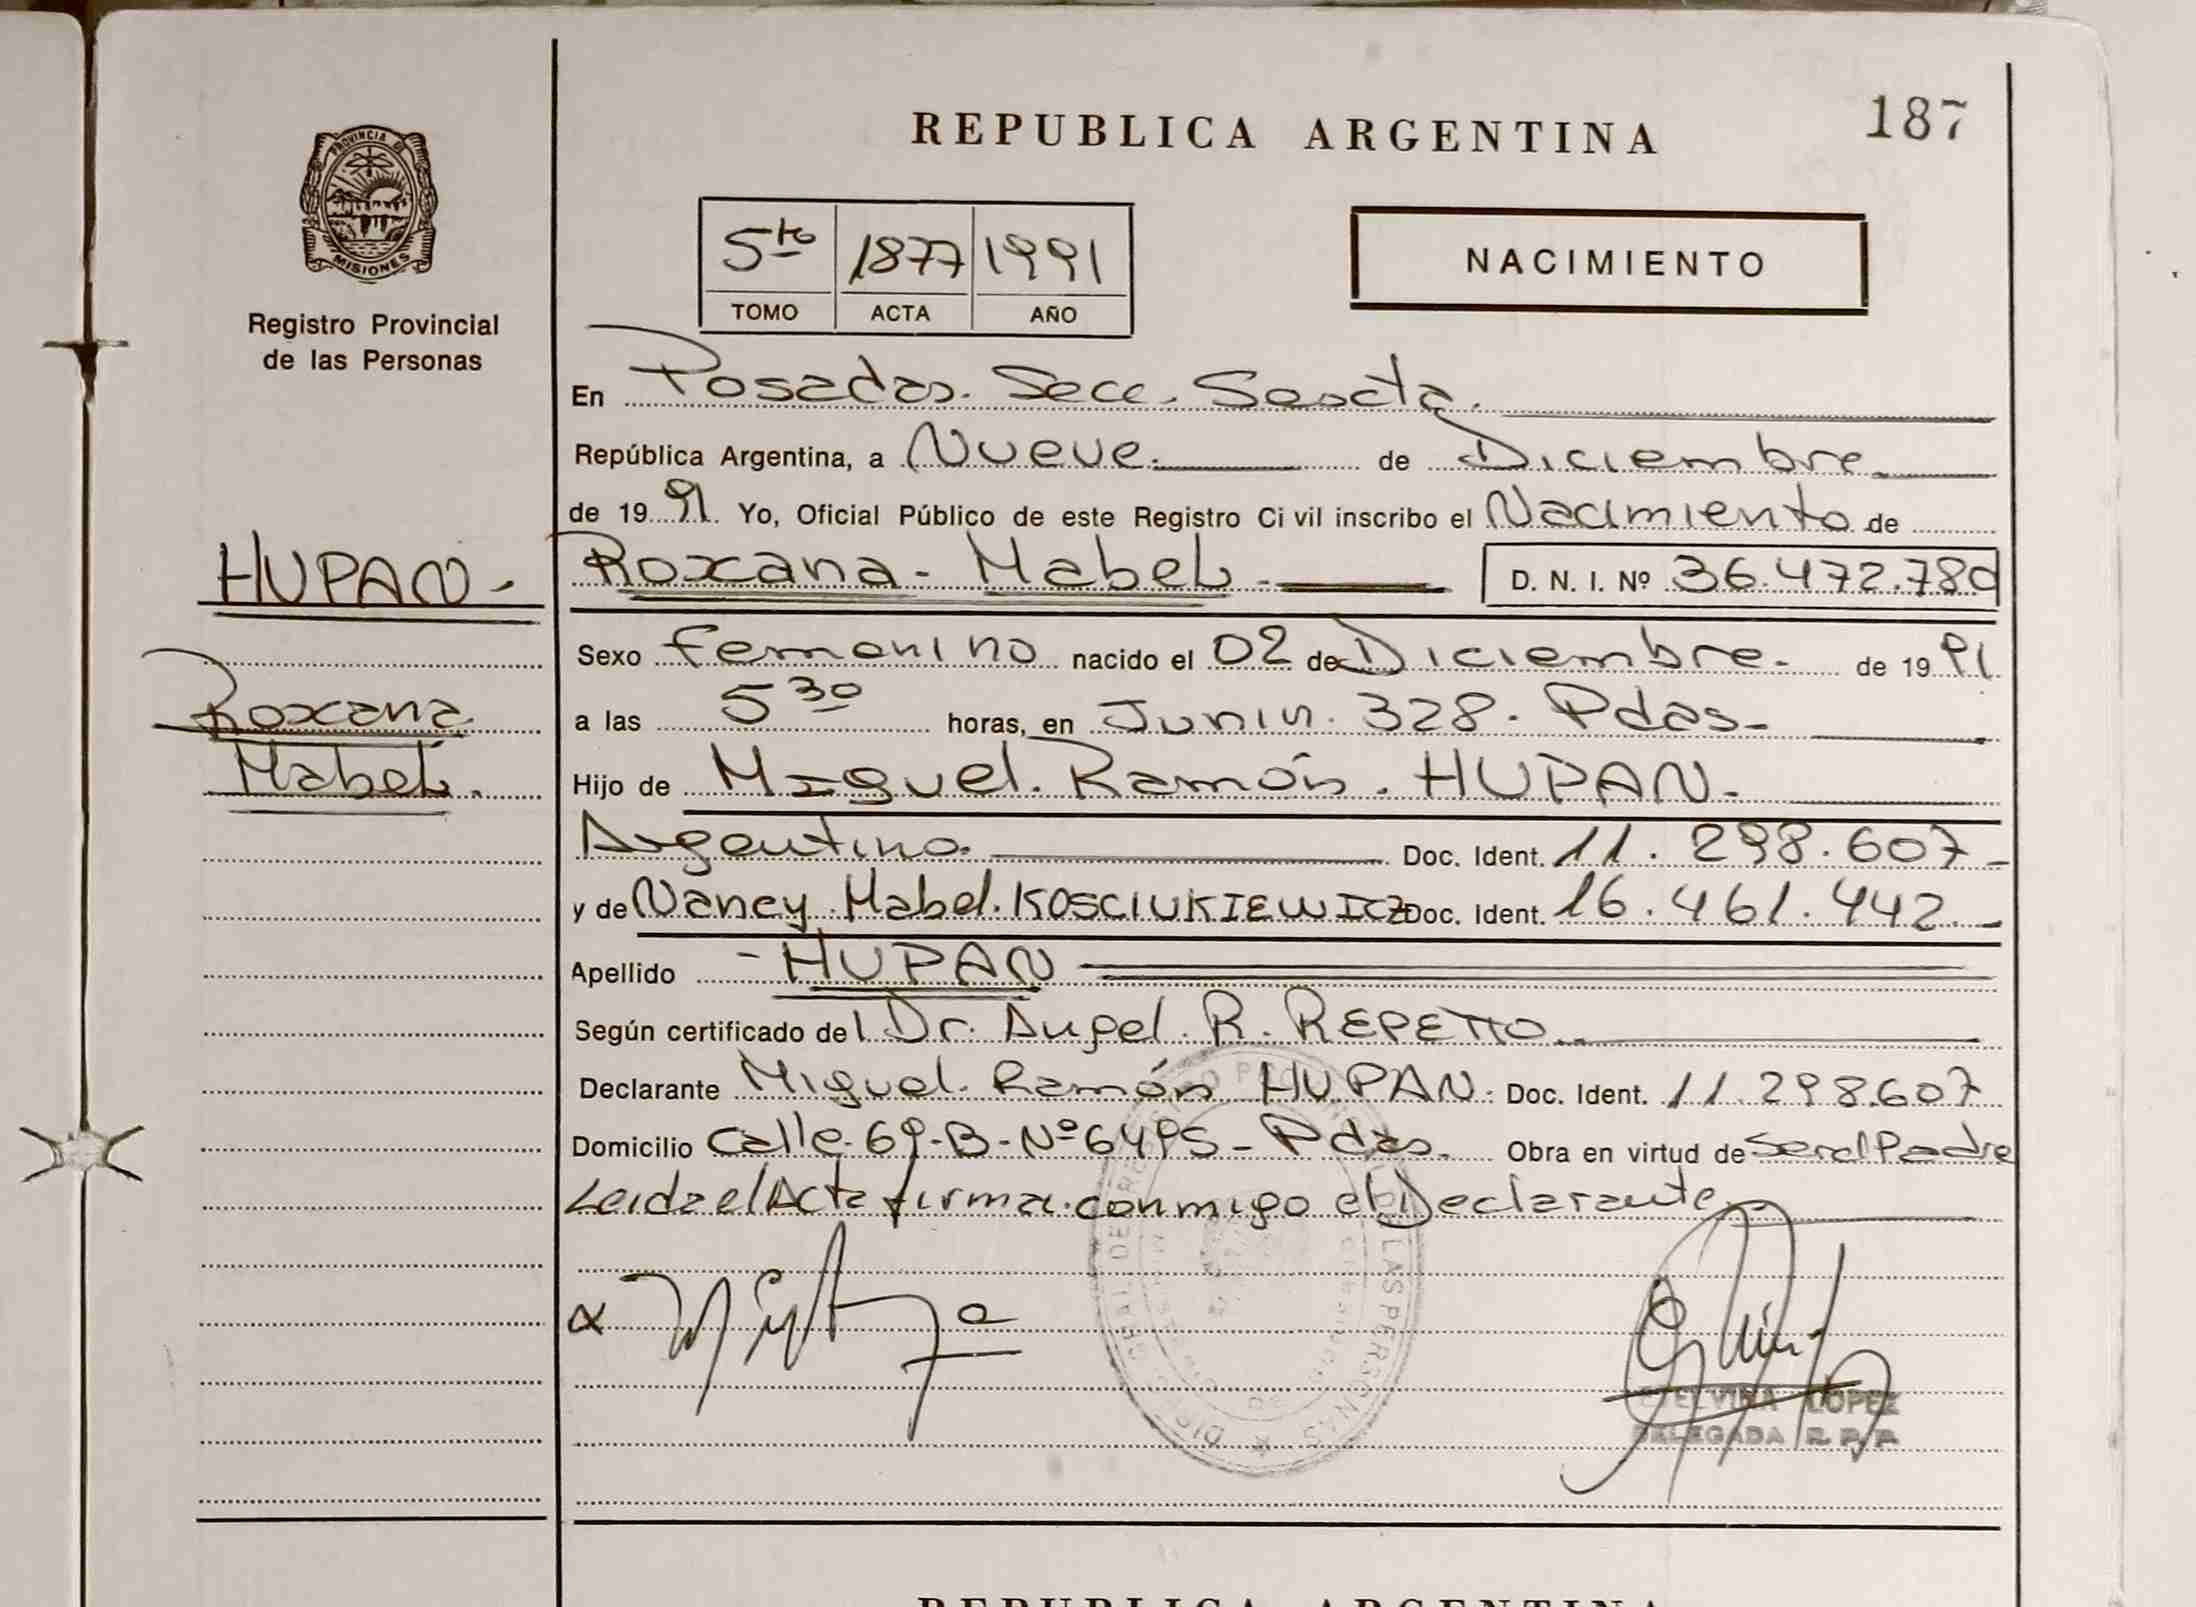 REPUBLICA ARGENTINA
187
PROVINCIA D
MISIONES
Registro Provincial
de las Personas
5to 1877 1991
TOMO ACTA AÑO
NACIMIENTO
En Posadas. Secc. Sexta.
República Argentina, a Nueve. de Diciembre.
de 1991. Yo, Oficial Público de este Registro Ci vil inscribo el Nacimiento de
HUPAN -
Roxana
Mabel.
Roxana - Mabel - D. N. I. Nº 36.472.780
Sexo femenino nacido el 02 de Diciembre. de 1991.
a las 5 30 horas, en Junin. 328. Pdas.
Hijo de Miguel. Ramón. HUPAN.
Argentino. Doc. Ident. 11. 298. 607
y de Nancy Mabel. KOSCIUKIEWICZ Doc. Ident. 16. 461. 442.
Apellido - HUPAN
Según certificado del Dr. Angel. R. REPETTO
Declarante Miguel. Ramón HUPAN. Doc. Ident. 11.298.607
Domicilio Calle. 69-B-Nº6495 - Pdas. Obra en virtud de Ser el Padre
Leida el Acta firma. conmigo el Declarante
LAS PERSONAS
ELVINA LOPEZ
DELEGADA R. P. P.
REPUBLICA ARGENTINA